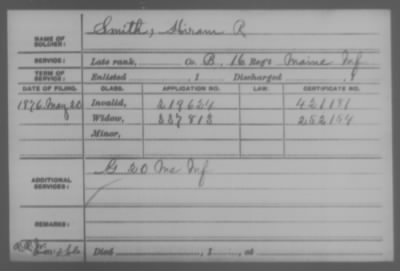 NAME OF SOLDIER: Smith, Hiram R
SERVICE: Late rank, Co. B, 16 Reg't Maine Inf
TERM OF SERVICE: Enlisted , 1 Discharged , 1
DATE OF FILING. CLASS. APPLICATION NO. LAW. CERTIFICATE NO.
1876 May 20 Invalid, 219654 421181
Widow, 337813 252154
Minor,
ADDITIONAL SERVICES: G 20 Me Inf
REMARKS:
Died , 1 , at